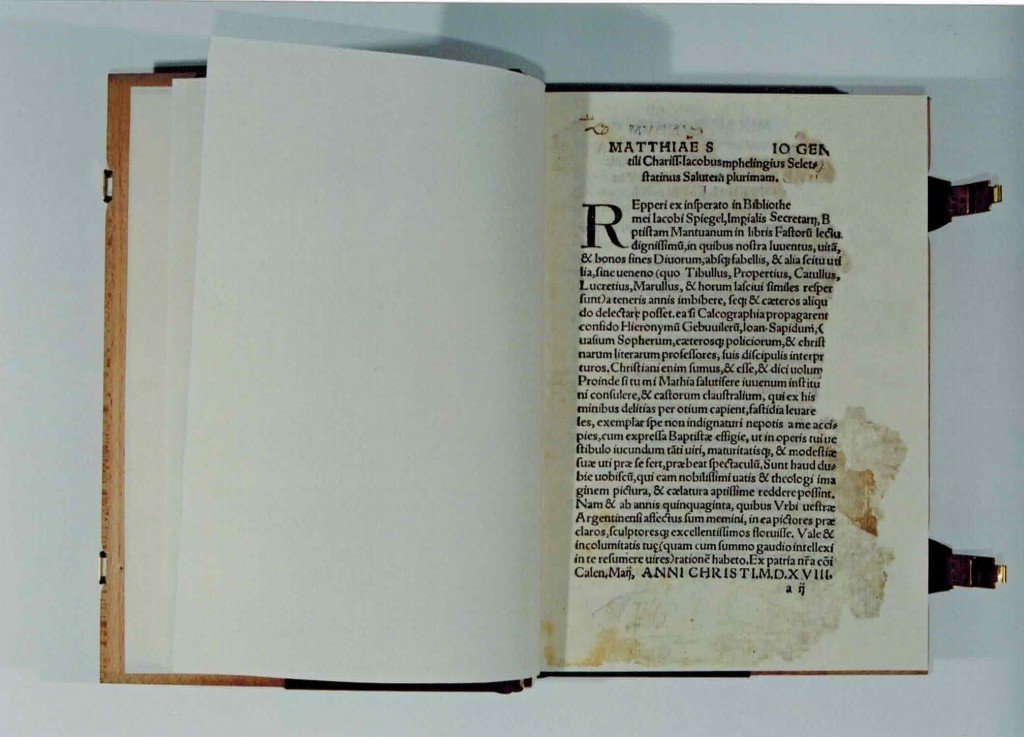 MATTHIAE S IO GEN
tili Chariss. Iacobus mphelingius Selet
statinus Salutem plurimam.
REpperi ex insperato in Bibliothe
mei Iacobi Spiegel, Impialis Secretarij, B
ptistam Mantuanum in libris Fastorū lectu
dignissimū, in quibus nostra Iuuentus, uitā,
& bonos fines Diuorum, absq; fabellis, & alia scitu uti
lia, sine ueneno (quo Tibullus, Propertius, Catullus,
Lucretius, Marullus, & horum lasciui similes resper
sunt) a teneris annis imbibere, seq; & cæteros aliqu
do delectare posset. ea si Calcographia propagarent
confido Hieronymū Gebuuilerū, Ioan. Sapidum, (
uasium Sopherum, cæterosq; policiorum, & christ
narum literarum professores, suis discipulis interpr
turos. Christiani enim sumus, & esse, & dici uolum
Proinde si tu mi Mathia salutifere iuuenum institu
ni consulere, & castorum claustralium, qui ex his
minibus delitias per otium capient, fastidia leuare
les, exemplar spe non indignaturi nepotis a me acci-
pies, cum expressa Baptistæ effigie, ut in operis tui ue
stibulo iucundum tāti uiri, maturitatisq;, & modestiæ
suæ uti præ se fert, præbeat spectaculū, Sunt haud du-
bie uobiscū, qui eam nobilissimi uatis & theologi ima
ginem pictura, & cælatura aptissime reddere possint.
Nam & ab annis quinquaginta, quibus Vrbi uestræ
Argentinensi affectus sum memini, in ea pictores præ
claros, sculptoresq; excellentissimos floruisse. Vale &
incolumitatis tuę (quam cum summo gaudio intellexi
in te resumere uires) rationē habeto. Ex patria nr̄a cōi
Calen. Maij, ANNI CHRISTI. M.D.XVIII.
a ij